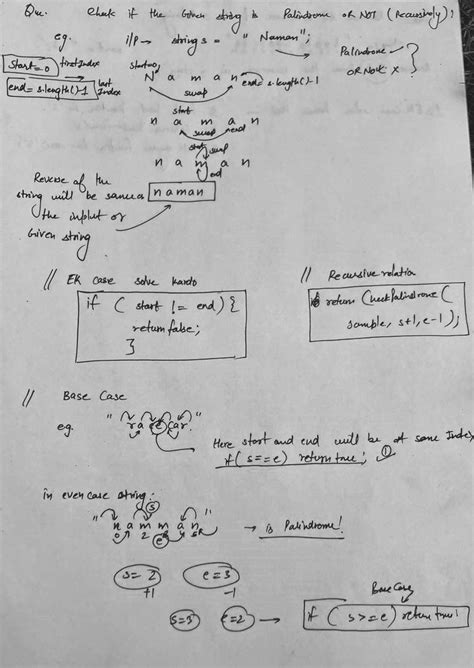 Que. Check if the Given string is Palindrome or NOT (Recursively)?
eg. i/p → string s = "Naman";
Palindrome ✓
or Not x
start=0 first Index
end= s.length()-1 last Index
start=0
N a m a n end= s.length()-1
swap
start
n a m a n
swap end
start swap
n a m a n
end
Reverse of the
string will be same as naman
the input or
Given string
// Ek case solve kardo
if ( start != end) {
return false;
}
// Recursive relation
return CheckPalindrome (
sample, s+1, e-1);
// Base Case
eg. "racecar"
Here start and end will be at same Index
if (s==e) return true; ①
in even case string:
s
"n a m m a n" → is Palindrome!
0 2 e
s=2 e=3
+1 -1
s=3 e=2 →
Base Case
if ( s>=e) return true!